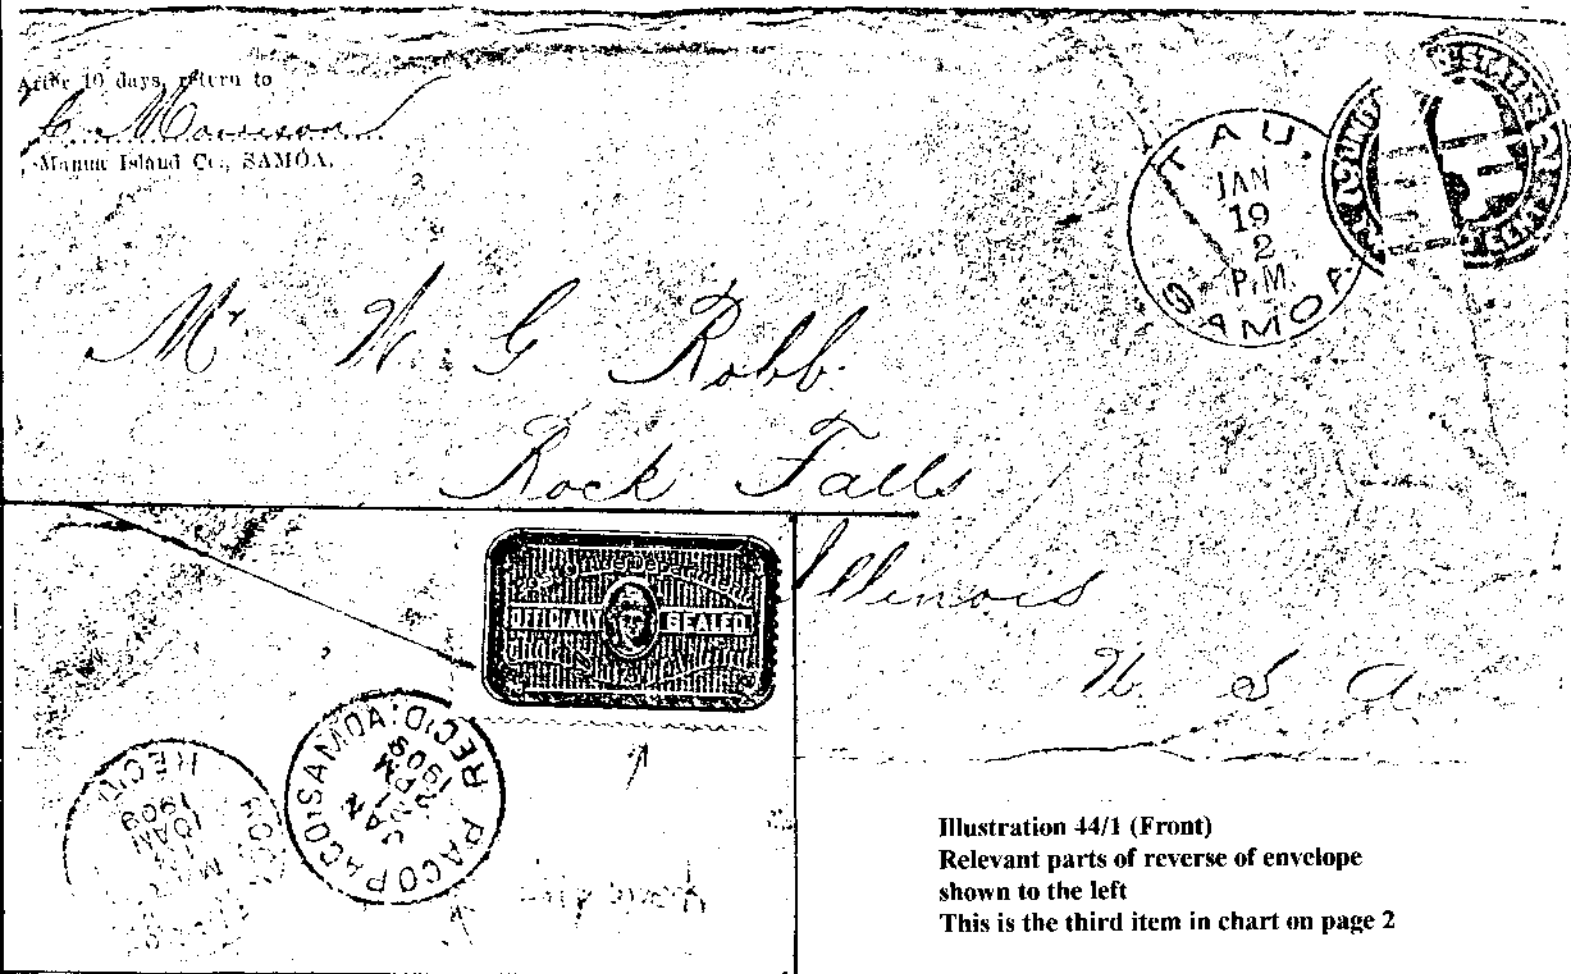 After 10 days, return to
Manua Island Co., SAMOA.
TAU.
JAN
19
2
P.M.
SAMOA
UNITED STATES
Mr. W. G Robb.
Rock Falls
Illinois
U. S. A.
Post Office Department
OFFICIALLY SEALED
PAGO PAGO, SAMOA.
REC'D.
JAN
PM
1909
ROCK
REC'D
10 AM
1909
Illustration 44/1 (Front)
Relevant parts of reverse of envelope
shown to the left
This is the third item in chart on page 2